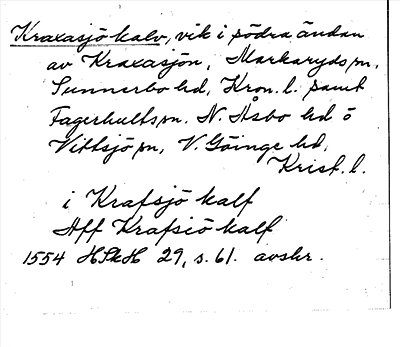 Kraxasjö kalv, vik i södra ändan
av Kraxasjön, Markaryds sn,
Sunnerbo hd, Kron. l. samt
Fagerhults sn, N. Åsbo hd ö
Vittsjö sn, V. Göinge hd,
Krist. l.
i Krafsjö kalf
Aff Krafsiö kalf
1554 HSkH 29, s. 61. avskr.